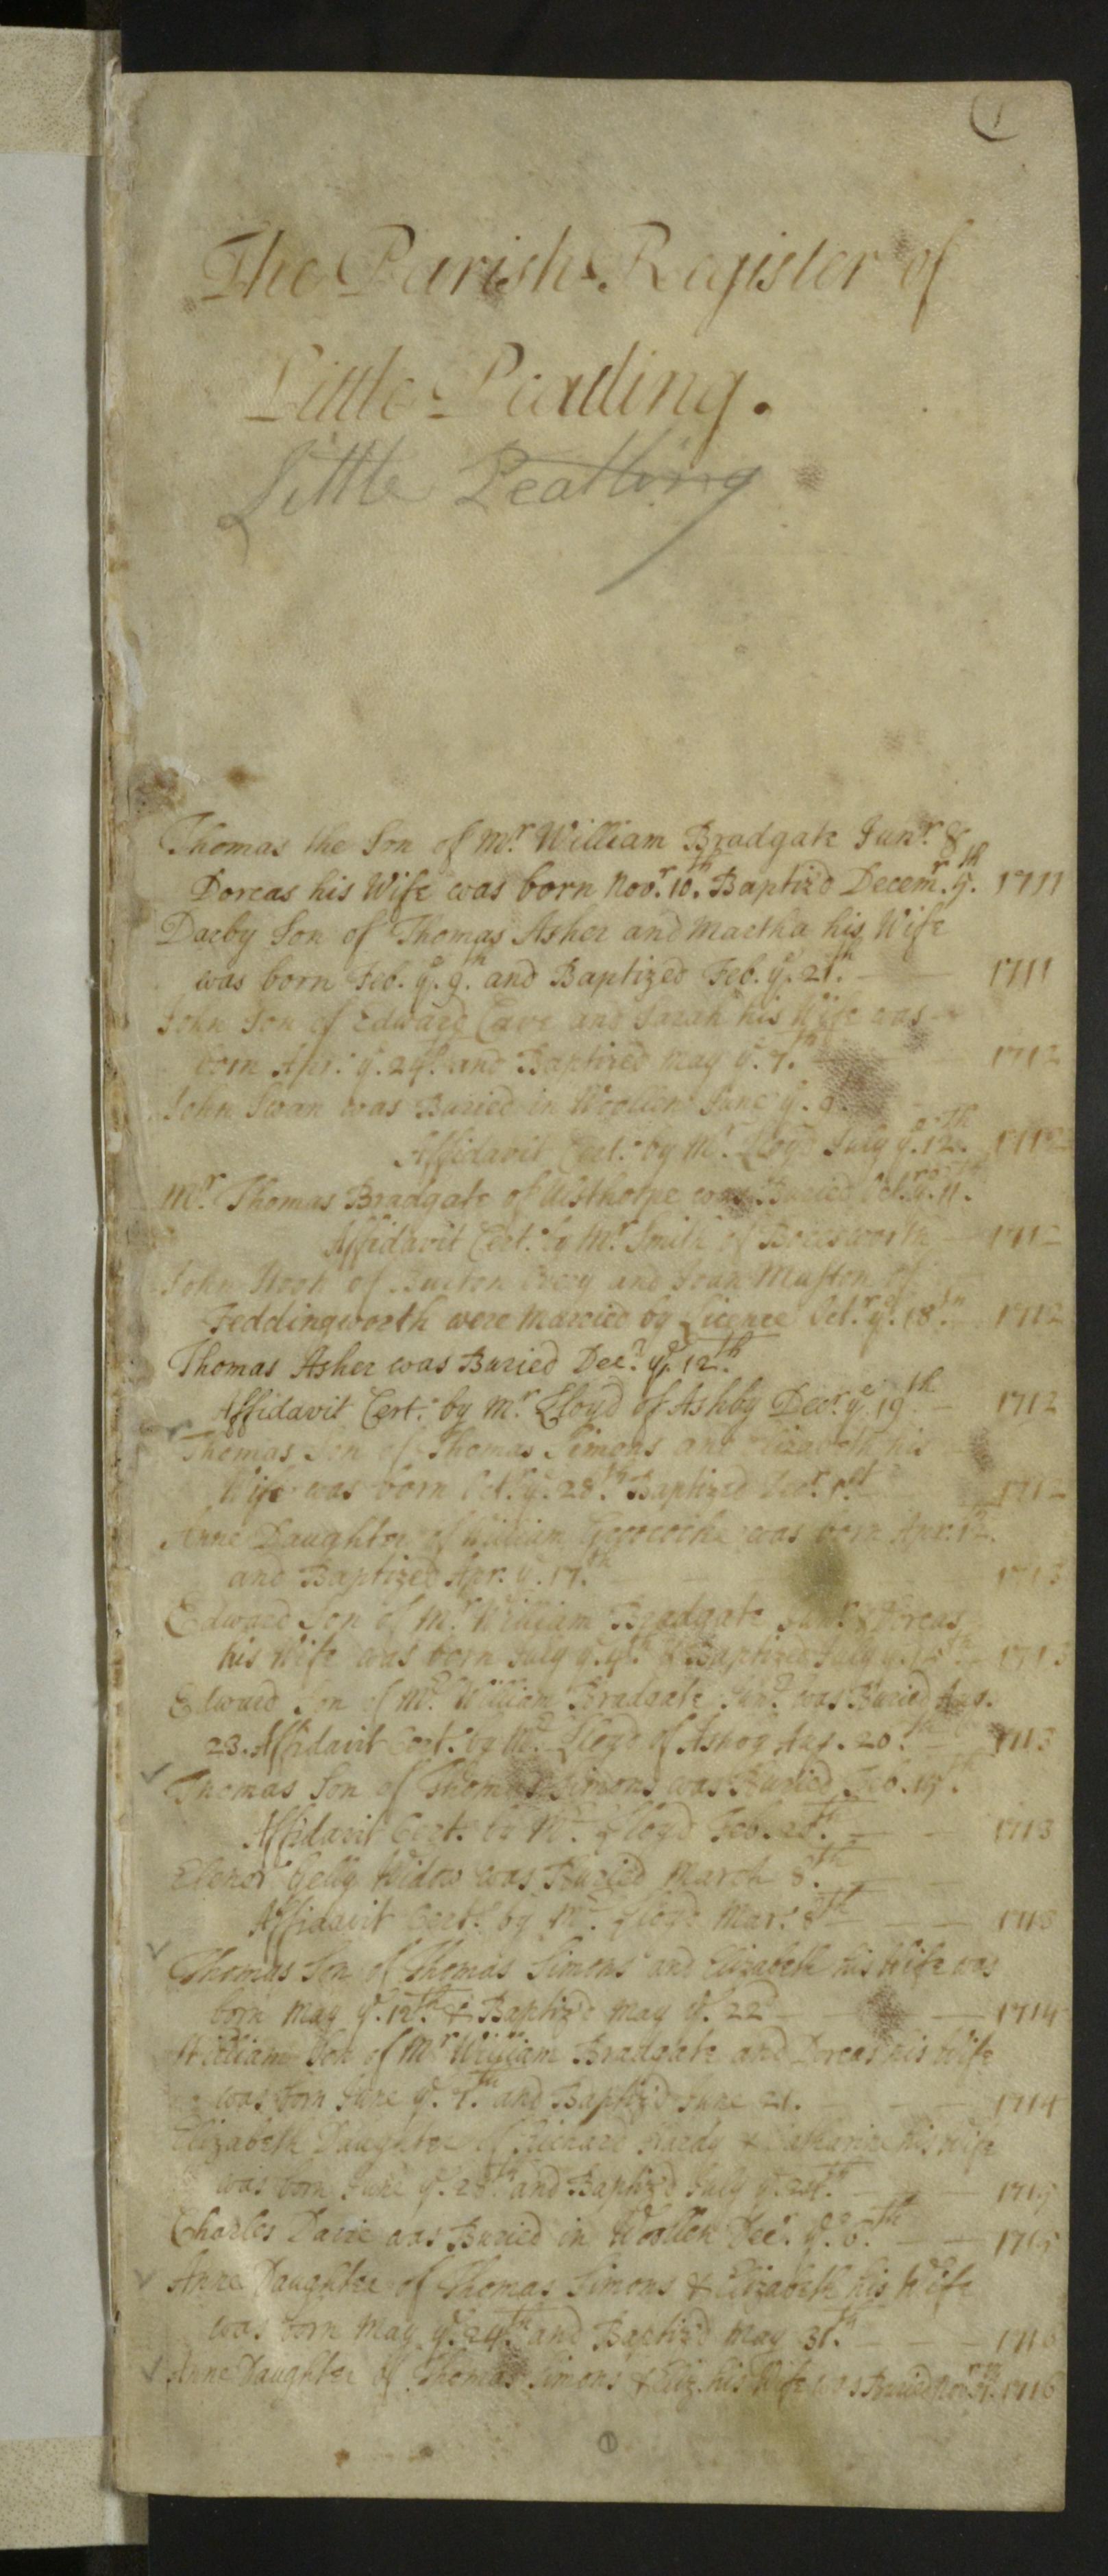 1
The Parish Register of
Little Peatling.
Little Peatling
Thomas the Son of Mr. William Bradgate Junr. &
Dorcas his Wife was born Novr. 10th. Baptiz'd Decemr. 9th. 1711
Darby Son of Thomas Asher and Martha his Wife
was born Feb. ye. 9th. and Baptized Feb. ye. 21th. 1711
John Son of Edward Cave and Sarah his Wife was
born Apr. ye. 29th. and Baptized May ye. 7th. 1712
John Swan was Buried in Woollen June ye.
Affidavit Cert. by Mr. Lloyd July ye. 12th. 1712
Mr. Thomas Bradgate of Ulsthorpe was Buried Octr. ye. 11th.
Affidavit Cert. by Mr. Smith of 1712
John of Burton and Joan Muston of
Feddingworth were Married by Licence Octr. ye. 18th. 1712
Thomas Asher was Buried Decr. ye. 12th.
Affidavit Cert. by Mr. Lloyd of Ashby Decr. ye. 19th 1712
Thomas Son of Thomas Simons and Elizabeth his
Wife was born Oct. ye. 28th. Baptized 1st 1712
Anne Daughter of William was born Apr. 12.
and Baptized Apr. ye. 17th 1713
Edward Son of Mr. William Bradgate Junr. & Dorcas
his Wife was born July ye. & Baptized July ye. 1713
Edward Son of Mr. William Bradgate Junr. was Buried Aug.
23. Affidavit Cert. by Mr. Lloyd of Ashby Aug. 1713
Thomas Son of Thomas Simons was Buried Feb. 19th.
Affidavit Cert. by Mr. Lloyd Feb. 1713
Elenor Widow was Buried March 8th.
Affidavit Cert. by Mr. Lloyd Mar. 8th 1713
Thomas Son of Thomas Simons and Elizabeth his Wife was
born May ye. 12th. & Baptiz'd May ye. 22d 1714
William Son of Mr William Bradgate and Dorcas his Wife
was born June ye. 7th. and Baptiz'd June 21. 1714
Elizabeth Daughter of Richard Hardy & Katharine his Wife
was born June ye. 28th and Baptiz'd July ye. 1715
Charles Davie was Buried in Woollen Decr. ye. 6th. 1715
Anne Daughter of Thomas Simons & Elizabeth his Wife
was born May ye. 24th. and Baptiz'd May 31th. 1716
Anne Daughter of Thomas Simons & Eliz. his Wife was Buried 1716
1